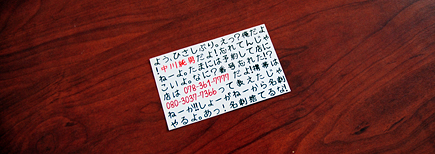 よう、ひさしぶり。えっ?俺だよ
!中川純男だよ!忘れてんじゃ
ねーよ。たまには予約して店に
こいよ。なに?番号忘れた!?
店は 078-361-7777 だよ!携帯は
080-3037-7366って教えたじゃ
ねーか!!しょーがねーから名刺
やるよ。あっ!名刺捨てるな!!